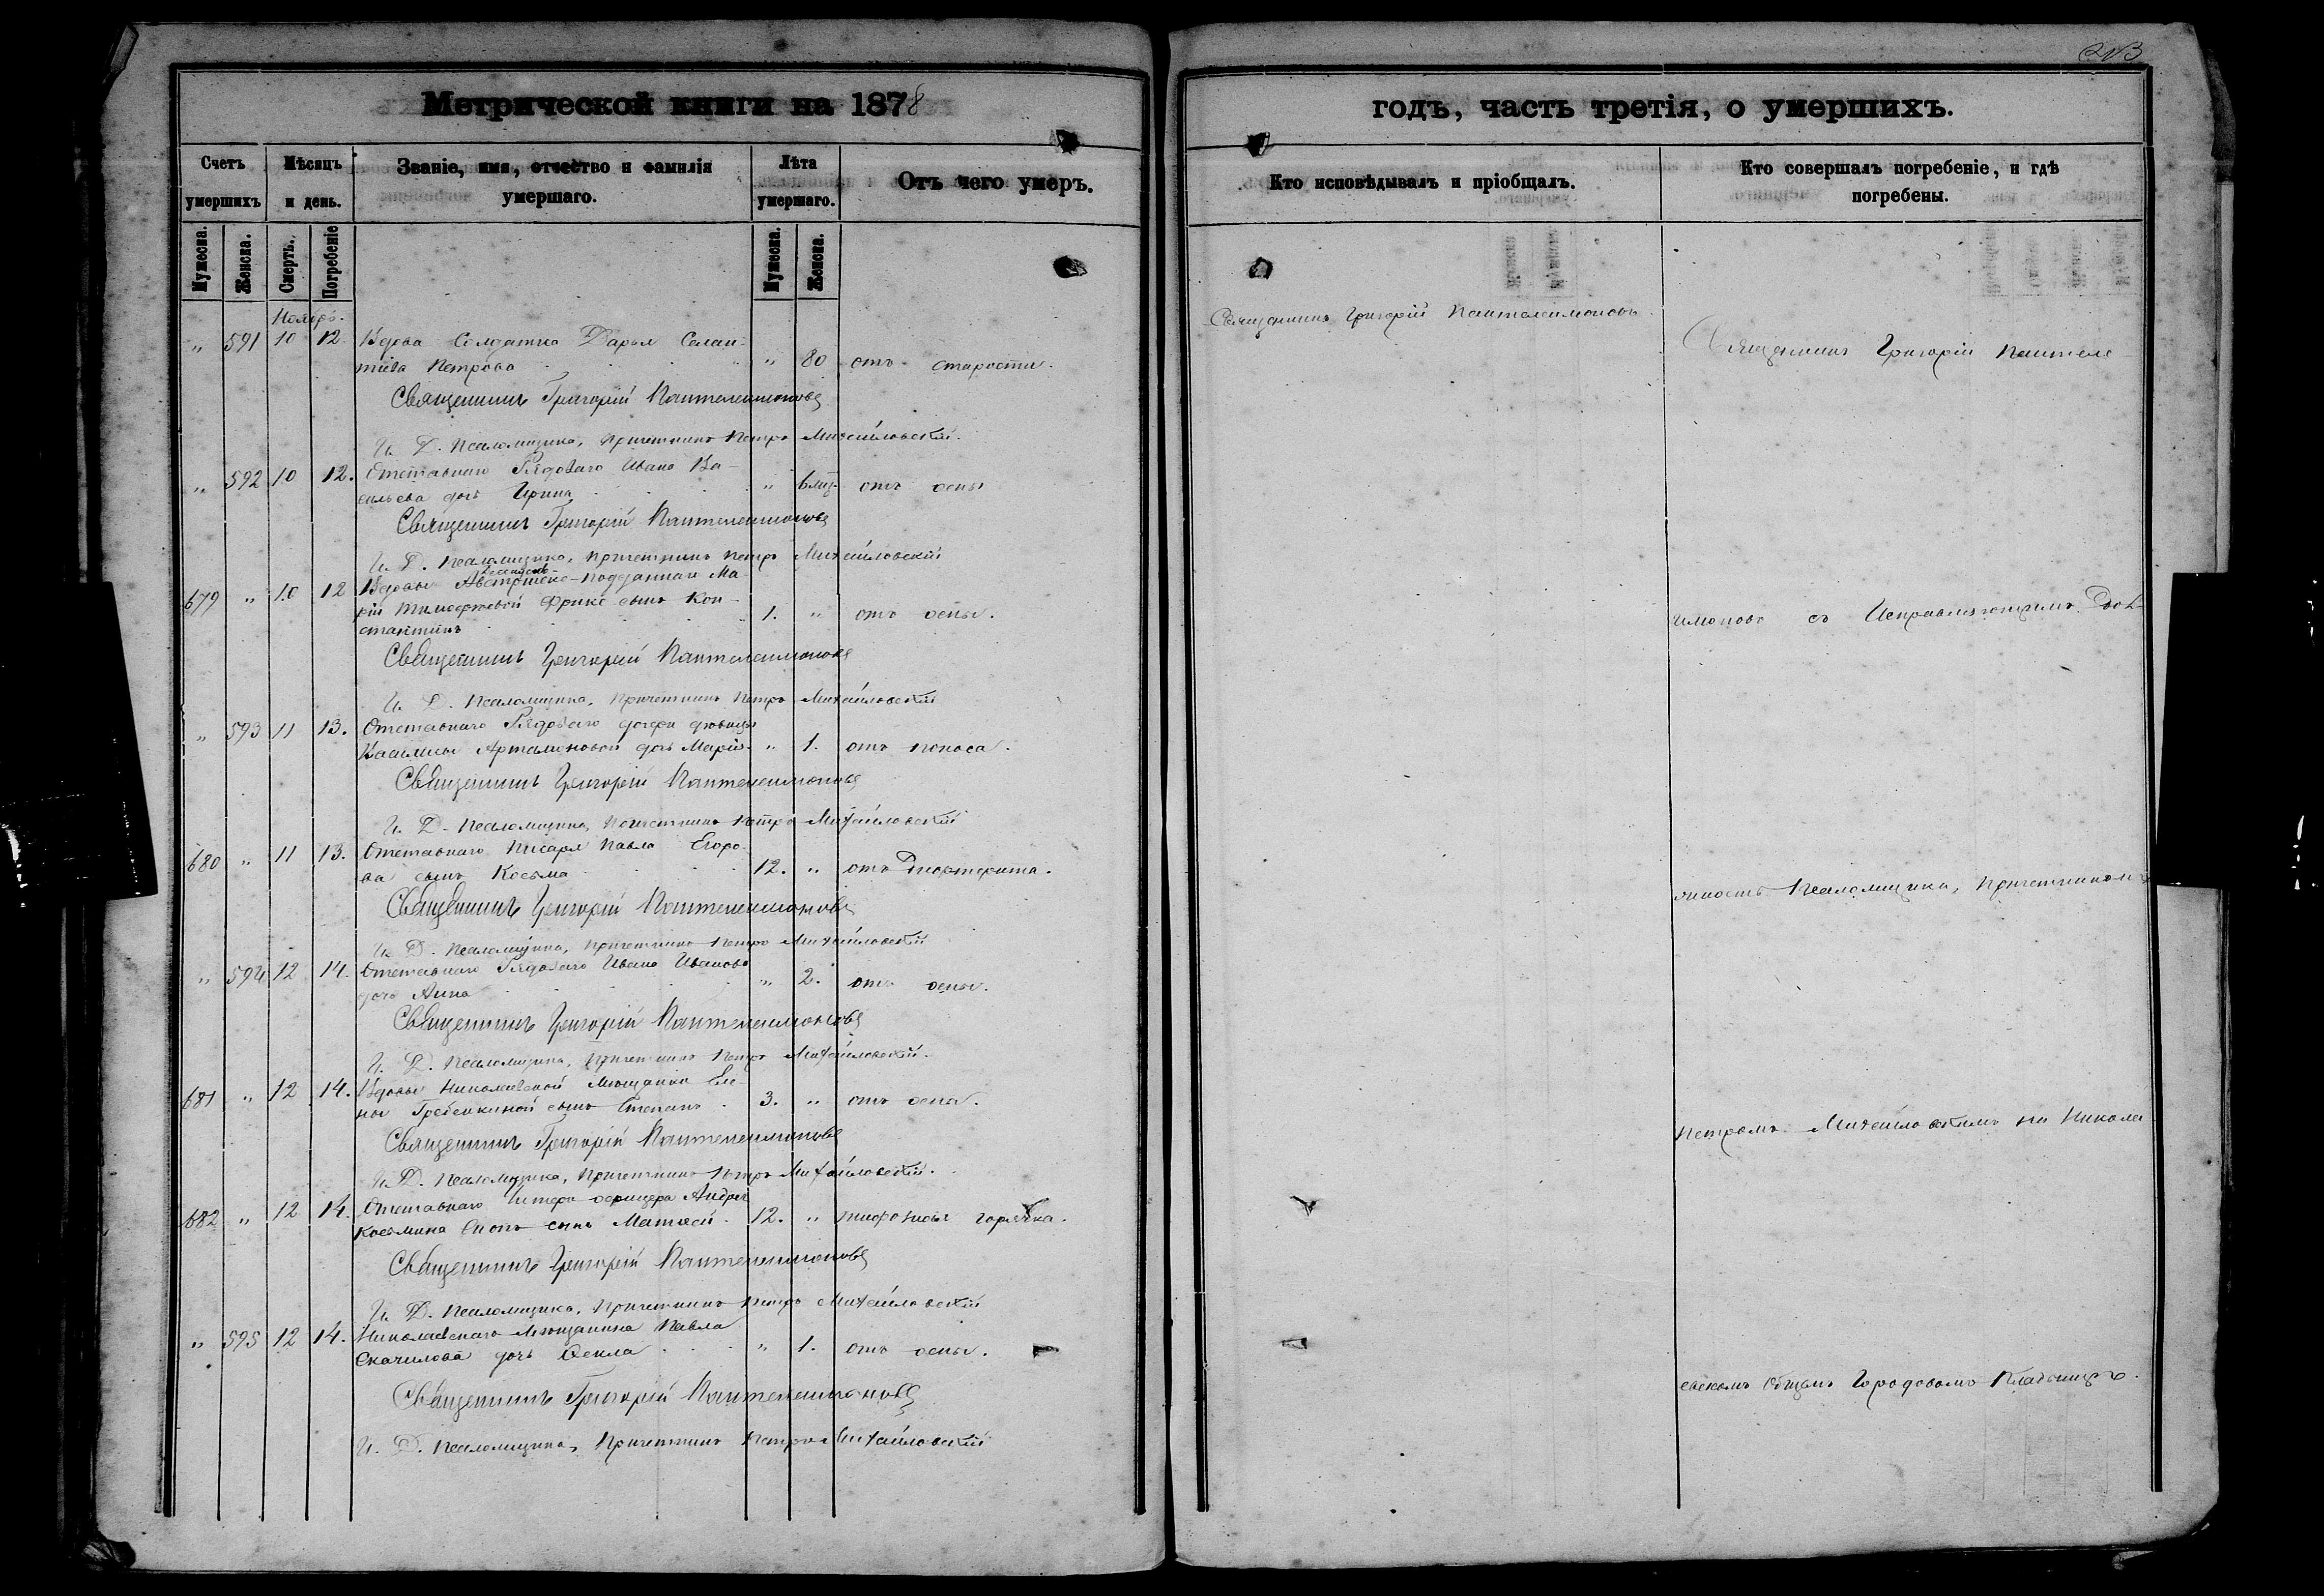 Метрической книги на 1878
Счетъ умершихъ
Мѣсяцъ и день.
Званіе, имя, отчество и фамилія умершаго.
Лѣта умершаго.
Отъ чего умеръ.
Мужеска. Женска. Смерть. Погребеніе Мужеска. Женска.
Ноябрь.
" 591 10 12. Вдова Солдатка Дарья
Петрова " 80 отъ старости.
Священникъ Григорій Пантелеимоновъ
И. Д. Псаломщика, Причетникъ Петръ Михайловскій.
" 592 10 12. Отставнаго Рядоваго Ивана Ва-
сильева дочь Ирина " 6 мц. отъ оспы
Священникъ Григорій Пантелеимоновъ
И. Д. Псаломщика, Причетникъ Петръ Михайловскій
679 " 10 12 Вдовы Австрійско-подданная Ма-
ріи Тимофеевой Фрикс сынъ Кон-
стантинъ 1. " отъ оспы.
Священникъ Григорій Пантелеимоновъ
И. Д. Псаломщика, Причетникъ Петръ Михайловскій
" 593 11 13. Отставнаго Рядоваго дочери дѣвицы
Артамоновой дочь Марія " 1. отъ поноса.
Священникъ Григорій Пантелеимоновъ
И. Д. Псаломщика, Причетникъ Петръ Михайловскій
680 " 11 13. Отставнаго Писаря Павла Егоро-
ва сынъ Косьма 12. " отъ Дифтерита.
Священникъ Григорій Пантелеимоновъ
И. Д. Псаломщика, Причетникъ Петръ Михайловскій
" 594 12 14. Отставнаго Рядоваго Ивана Иванова
дочь Анна " 2. отъ оспы.
Священникъ Григорій Пантелеимоновъ
И. Д. Псаломщика, Причетникъ Петръ Михайловскій.
681 " 12 14. Вдовы Николаевской Мѣщанки Еле-
ны Гребенкиной сынъ Степанъ 3. " отъ оспа.
Священникъ Григорій Пантелеимоновъ
И. Д. Псаломщика, Причетникъ Петръ Михайловскій.
682 " 12 14. Отставнаго Унтеръ офицера Андрея
Косьмина сынъ Матвей. 12. " тифозная горячка.
Священникъ Григорій Пантелеимоновъ
И. Д. Псаломщика, Причетникъ Петръ Михайловскій
" 595 12 14. Николаевскаго Мѣщанина Павла
Скачилова дочь Фекла " 1. отъ оспы.
Священникъ Григорій Пантелеимоновъ
И. Д. Псаломщика, Причетникъ Петръ Михайловскій
годъ, часть третія, о умершихъ.
Кто исповѣдывалъ и пріобщалъ.
Кто совершалъ погребеніе, и гдѣ погребены.
Священникъ Григорій Пантелеимоновъ
Священникъ Григорій Пантеле-
имоновъ съ Исправляющимъ Дол-
жность Псаломщика, Причетникомъ
Петромъ Михайловскимъ на Никола
евскомъ Общемъ Городовомъ Кладбищѣ.